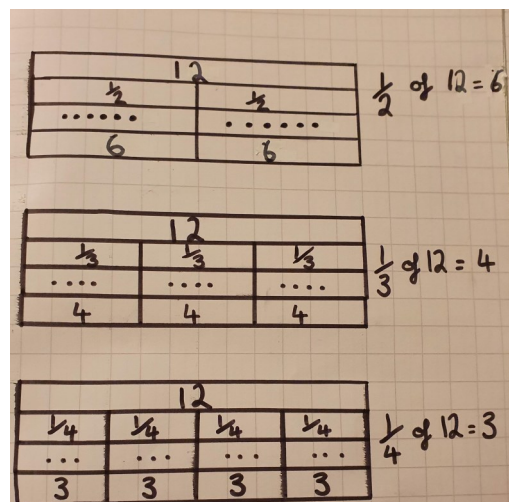 12
½ ½
...... ......
6 6
½ of 12 = 6
12
⅓ ⅓ ⅓
.... .... ....
4 4 4
⅓ of 12 = 4
12
¼ ¼ ¼ ¼
... ... ... ...
3 3 3 3
¼ of 12 = 3